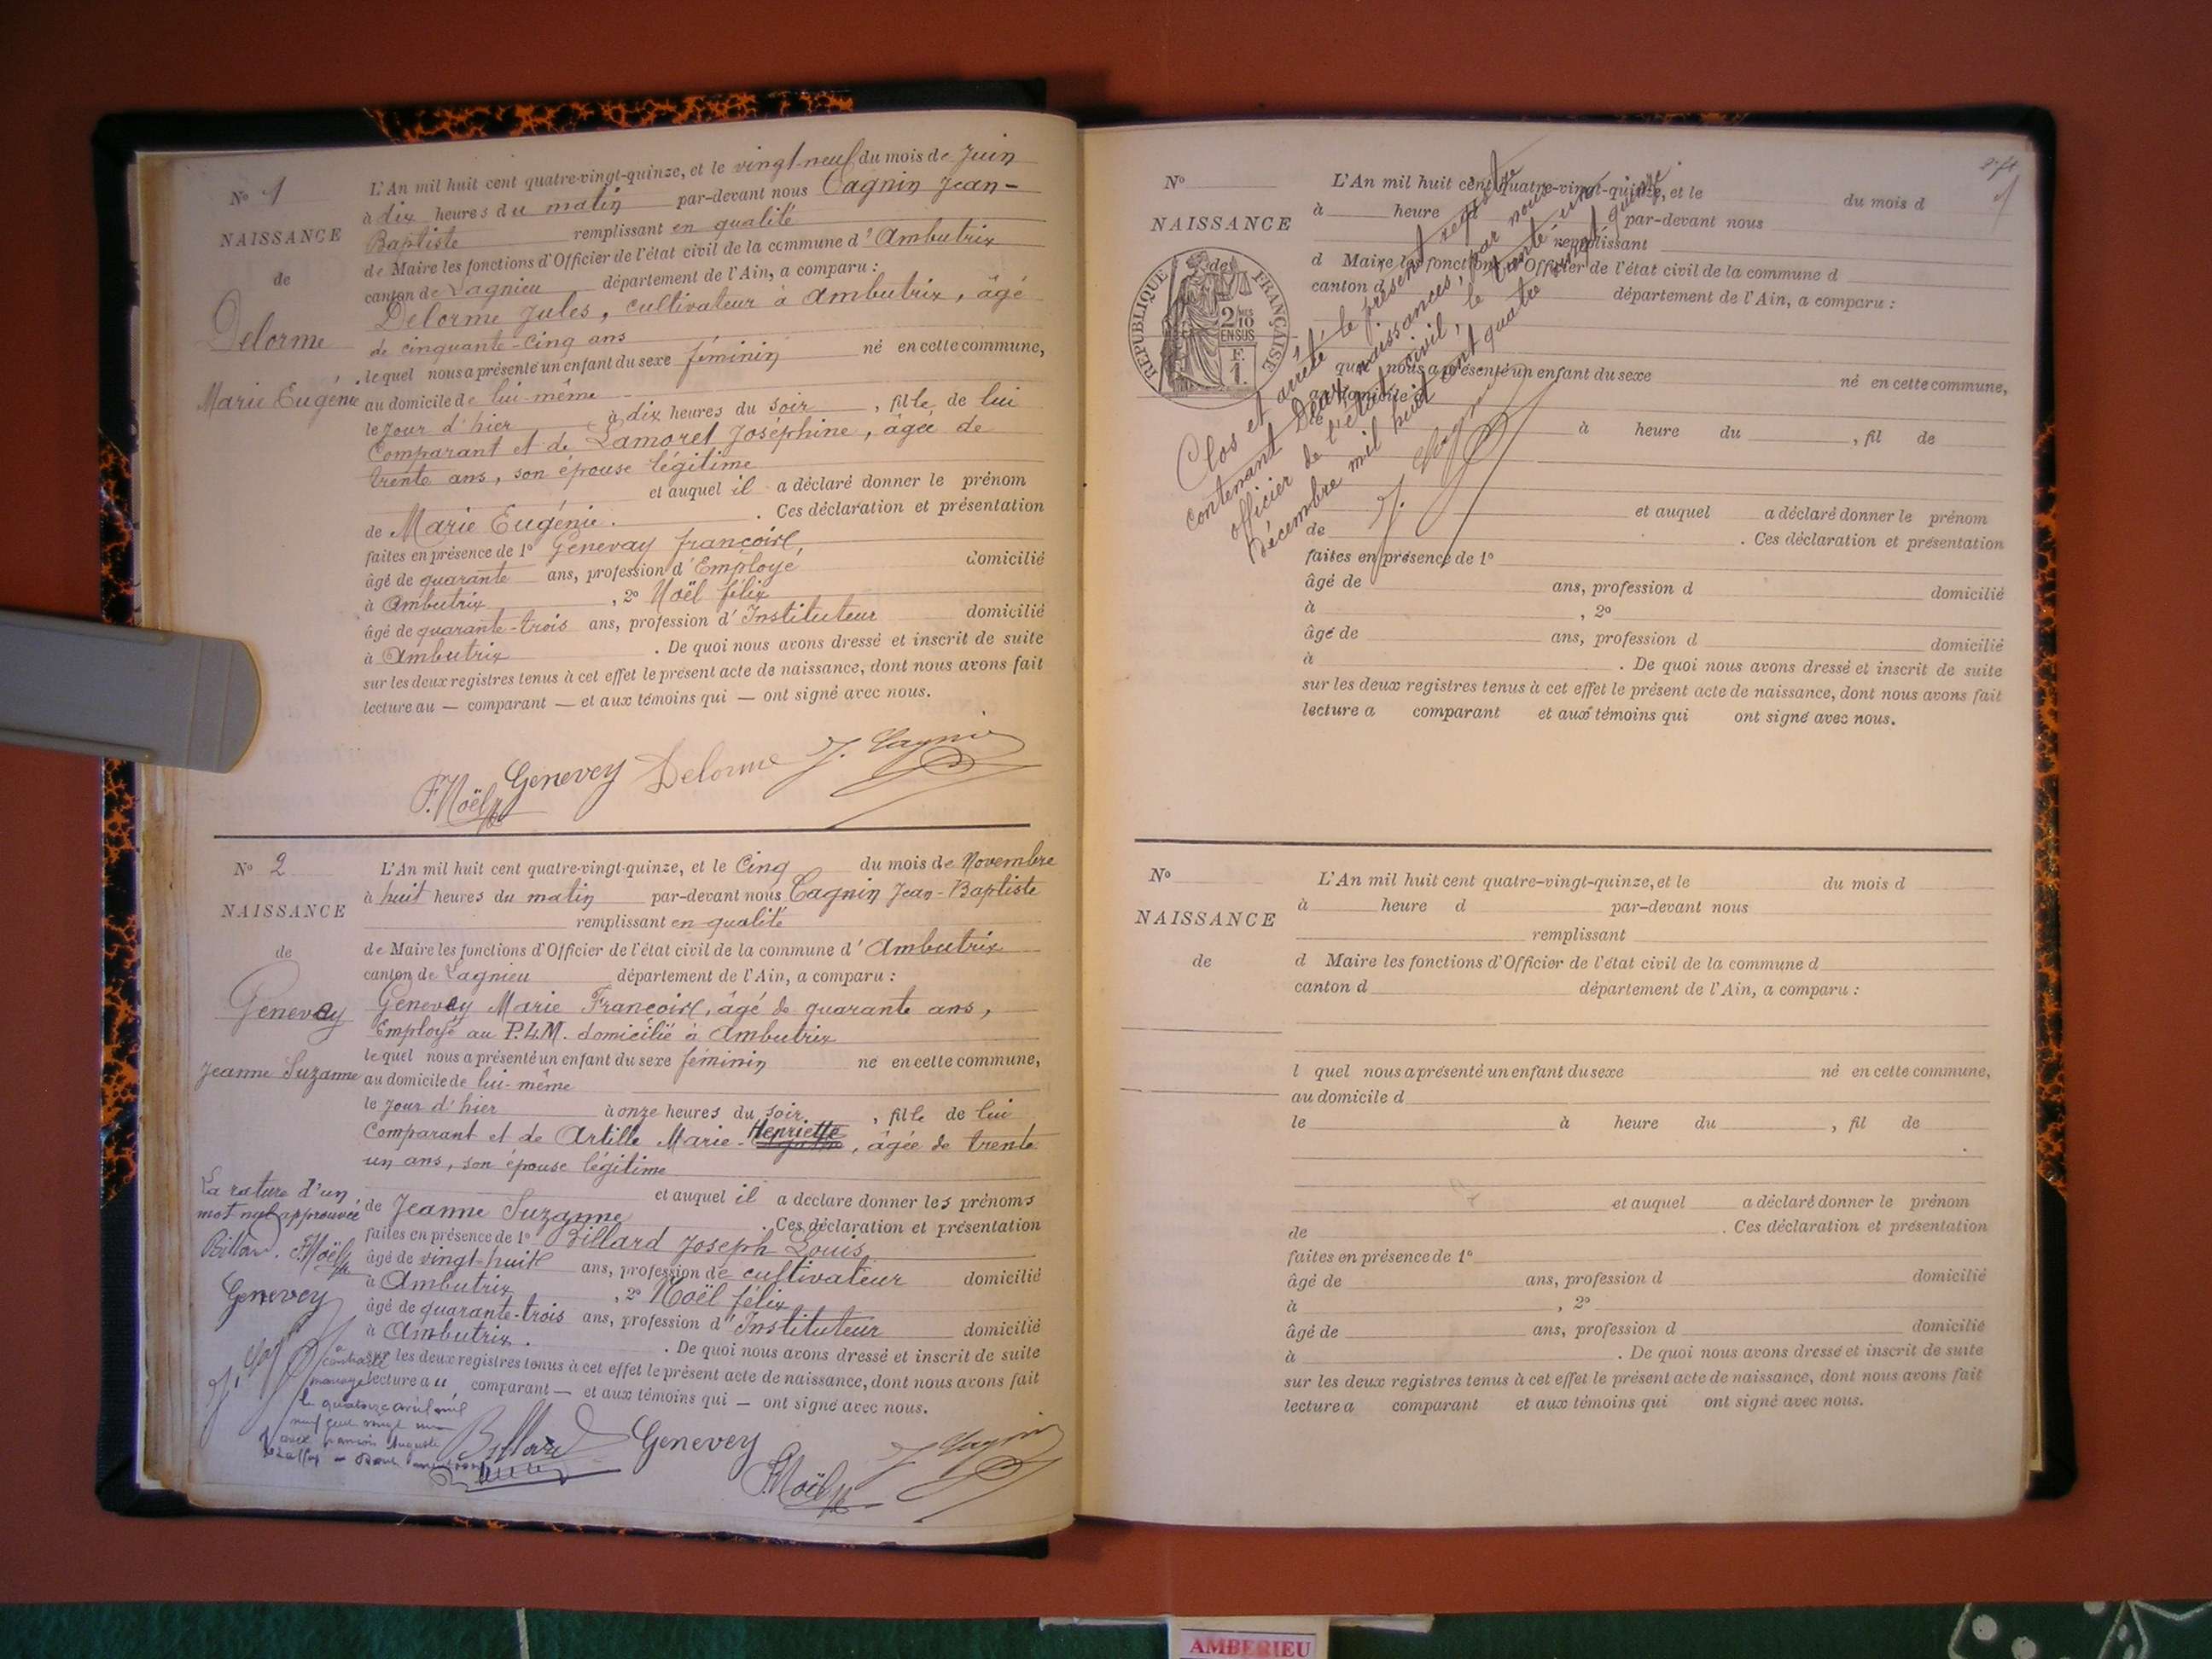 Nº 1
NAISSANCE
de
Delorme
Marie Eugénie
L'An mil huit cent quatre-vingt-quinze, et le vingt-neuf du mois de Juin
à dix heures du matin par-devant nous Cagnin Jean-
Baptiste remplissant en qualité
de Maire les fonctions d'Officier de l'état civil de la commune d'Ambutrix
canton de Lagnieu département de l'Ain, a comparu :
Delorme Jules, cultivateur à Ambutrix, âgé
de cinquante-cinq ans
lequel nous a présenté un enfant du sexe féminin né en cette commune,
au domicile de lui-même
le jour d'hier à dix heures du soir, fille de lui
Comparant et de Lamoret Joséphine, âgée de
trente ans, son épouse légitime
et auquel il a déclaré donner le prénom
de Marie Eugénie. Ces déclaration et présentation
faites en présence de 1º Genevay françois,
âgé de quarante ans, profession d'Employé domicilié
à Ambutrix, 2º Noël félix
âgé de quarante-trois ans, profession d'Instituteur domicilié
à Ambutrix. De quoi nous avons dressé et inscrit de suite
sur les deux registres tenus à cet effet le présent acte de naissance, dont nous avons fait
lecture au — comparant — et aux témoins qui — ont signé avec nous.
F. Noël Genevey Delorme J. Cagnin
Nº 2
NAISSANCE
de
Genevay
Jeanne Suzanne
L'An mil huit cent quatre-vingt-quinze, et le Cinq du mois de Novembre
à huit heures du matin par-devant nous Cagnin Jean-Baptiste
remplissant en qualité
de Maire les fonctions d'Officier de l'état civil de la commune d'Ambutrix
canton de Lagnieu département de l'Ain, a comparu :
Genevay Marie François, âgé de quarante ans,
Employé au P.L.M. domicilié à Ambutrix
lequel nous a présenté un enfant du sexe féminin né en cette commune,
au domicile de lui-même
le jour d'hier à onze heures du soir, fille de lui
Comparant et de Artille Marie-Henriette, âgée de trente
un ans, son épouse légitime
et auquel il a déclaré donner les prénoms
de Jeanne Suzanne. Ces déclaration et présentation
faites en présence de 1º Billard Joseph Louis
âgé de vingt-huit ans, profession de cultivateur domicilié
à Ambutrix, 2º Noël félix
âgé de quarante-trois ans, profession d'Instituteur domicilié
à Ambutrix. De quoi nous avons dressé et inscrit de suite
sur les deux registres tenus à cet effet le présent acte de naissance, dont nous avons fait
lecture au comparant — et aux témoins qui — ont signé avec nous.
La rature d'un
mot nul approuvée
Billard. F. Noël
Genevey
J. Cag
a contracté
mariage
le quatorze avril mil
neuf cent vingt un
avec françois Auguste
Billard Genevey F. Noël J. Cagnin
Nº
NAISSANCE
de
RÉPUBLIQUE FRANÇAISE
2/10
EN SUS
F.
1.
L'An mil huit cent quatre-vingt-quinze, et le du mois d
à heure d par-devant nous
remplissant
d Maire les fonctions d'Officier de l'état civil de la commune d
canton d département de l'Ain, a comparu :
quel nous a présenté un enfant du sexe né en cette commune,
au domicile d
à heure du , fil de
et auquel a déclaré donner le prénom
de . Ces déclaration et présentation
faites en présence de 1º
âgé de ans, profession d domicilié
à , 2º
âgé de ans, profession d domicilié
à . De quoi nous avons dressé et inscrit de suite
sur les deux registres tenus à cet effet le présent acte de naissance, dont nous avons fait
lecture a comparant et aux témoins qui ont signé avec nous.
Clos et arrêté le présent registre
contenant Deux naissances, par nous
officier de l'état civil, le trente un
Décembre mil huit cent quatre vingt quinze.
J. Cagnin
Nº
NAISSANCE
de
L'An mil huit cent quatre-vingt-quinze, et le du mois d
à heure d par-devant nous
remplissant
d Maire les fonctions d'Officier de l'état civil de la commune d
canton d département de l'Ain, a comparu :
l quel nous a présenté un enfant du sexe né en cette commune,
au domicile d
le à heure du , fil de
et auquel a déclaré donner le prénom
de . Ces déclaration et présentation
faites en présence de 1º
âgé de ans, profession d domicilié
à , 2º
âgé de ans, profession d domicilié
à . De quoi nous avons dressé et inscrit de suite
sur les deux registres tenus à cet effet le présent acte de naissance, dont nous avons fait
lecture a comparant et aux témoins qui ont signé avec nous.
AMBERIEU